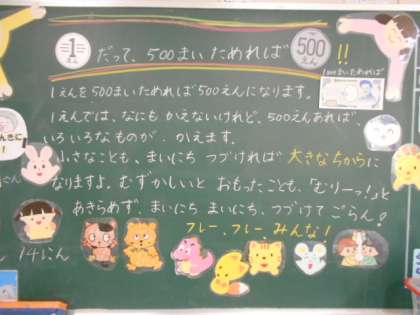 1えん だって、500まい ためれば 500えん !!
1000まいためれば
1えんを500まいためれば500えんになります。
1えんでは、なにも かえないけれど。500えんあれば、
いろいろなものが、かえます。
小さなことも、まいにち つづければ 大きなちからに
なりますよ。むずかしいと おもったことも、「むりーっ!」と
あきらめず、まいにち まいにち、つづけて ごらん!
フレー、フレー、みんな!
14にん